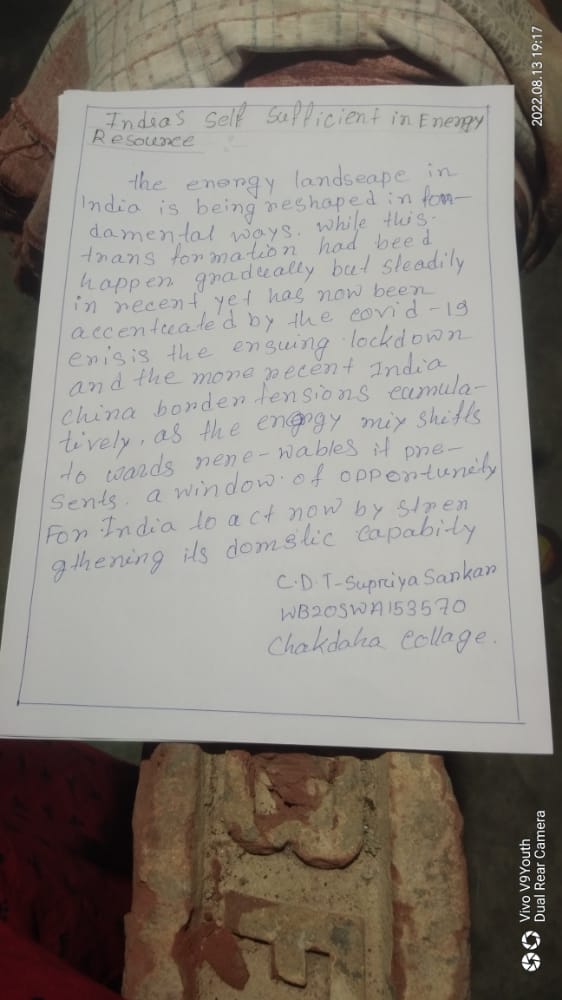 India's Self Sufficient in Energy
Resource
the energy landseape in
India is being reshaped in fon-
damental ways. while this.
trans formation had beed
happen gradually but steadily
in recent yet has now been
accentuated by the covid-19
crisis the ensuing lockdown
and the more recent India
china border tensions cumula-
tively, as the energy mix shifts
to wards rene-wables it pre-
sents. a window of opportunity
For India to act now by stren
gthening its domstic capabity
C.D.T-Supriya Sarkar
WB20SWA153570
Chakdaha Collage.
2022.08.13 19:17
Vivo V9Youth
Dual Rear Camera